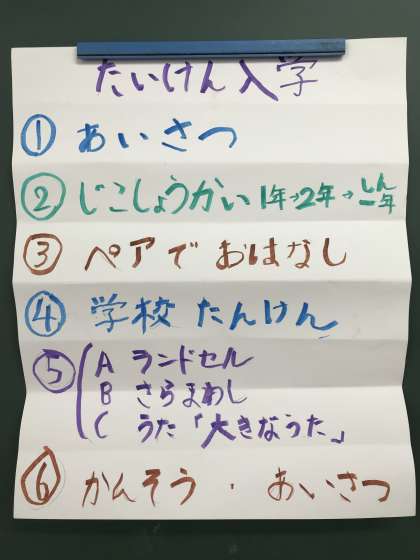 たいけん入学
① あいさつ
② じこしょうかい 1年→2年→しん一年
③ ペアで おはなし
④ 学校 たんけん
⑤ A ランドセル
B さらまわし
C うた「大きなうた」
⑥ かんそう・あいさつ